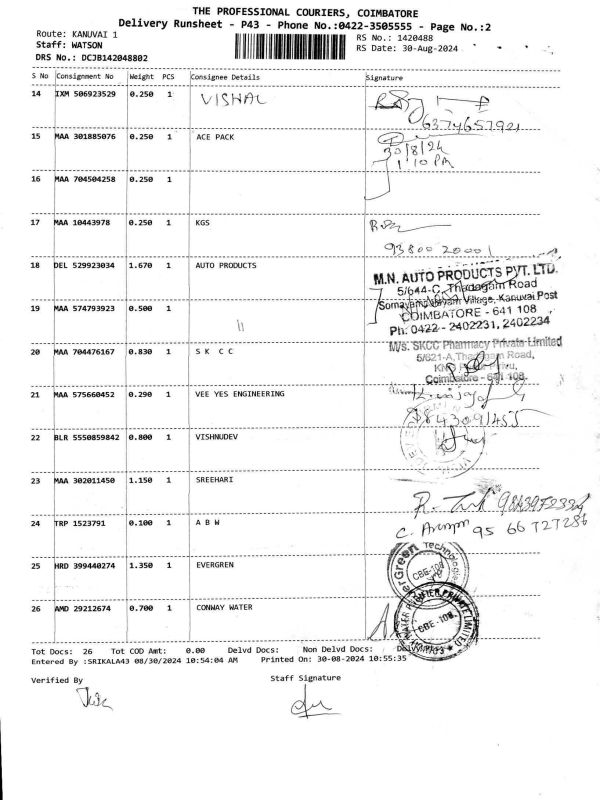 THE PROFESSIONAL COURIERS, COIMBATORE
Delivery Runsheet - P43 - Phone No.:0422-3505555 - Page No.:2
Route: KANUVAI 1 RS No.: 1420488
Staff: WATSON RS Date: 30-Aug-2024
DRS No.: DCJB142048802
S No Consignment No Weight PCS Consignee Details Signature
14 IXM 506923529 0.250 1 VISHAL
6374657921
15 MAA 301885076 0.250 1 ACE PACK
30/8/24
1:10 PM
16 MAA 704504258 0.250 1
17 MAA 10443978 0.250 1 KGS
93800 20001
18 DEL 529923034 1.670 1 AUTO PRODUCTS
M.N. AUTO PRODUCTS PVT. LTD.
5/644-C, Thadagam Road
Somayampalayam Village, Kanuvai Post
COIMBATORE - 641 108
Ph: 0422 - 2402231, 2402234
19 MAA 574793923 0.500 1 ||
20 MAA 704476167 0.830 1 S K C C
M/s. SKCC Pharmacy Private Limited
5/621-A, Thadagam Road,
Coimbatore - 641 108.
21 MAA 575660452 0.290 1 VEE YES ENGINEERING
9843091455
22 BLR 5550859842 0.800 1 VISHNUDEV
23 MAA 302011450 1.150 1 SREEHARI
24 TRP 1523791 0.100 1 A B W
95 66 727286
25 HRD 399440274 1.350 1 EVERGREN
CBE-108
26 AMD 29212674 0.700 1 CONWAY WATER
WATER PURIFIER PRIVATE LIMITED
CBE-108.
Tot Docs: 26 Tot COD Amt: 0.00 Delvd Docs: Non Delvd Docs:
Entered By :SRIKALA43 08/30/2024 10:54:04 AM Printed On: 30-08-2024 10:55:35
Verified By Staff Signature